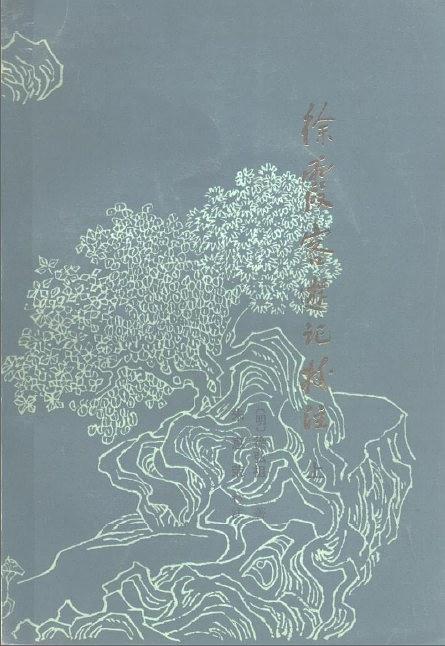 徐霞客遊记校注 上
〔明〕徐弘祖 著
朱惠荣 校注